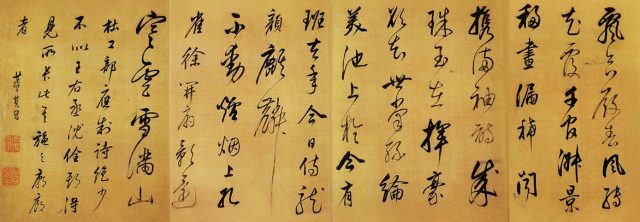 飄合殿春風轉
花覆千官淑景
移晝漏稀聞
攜滿袖詩成
珠玉在揮豪
欲知世掌絲綸
美池上於今有
班去年今日侍龍
顏麒麟
不動爐烟上孔
雀徐開扇影還
寒雲雪滿山
杜工部應制詩絕少
不似王右丞沈佺期得
見所長此施之廊廟
者
董其昌